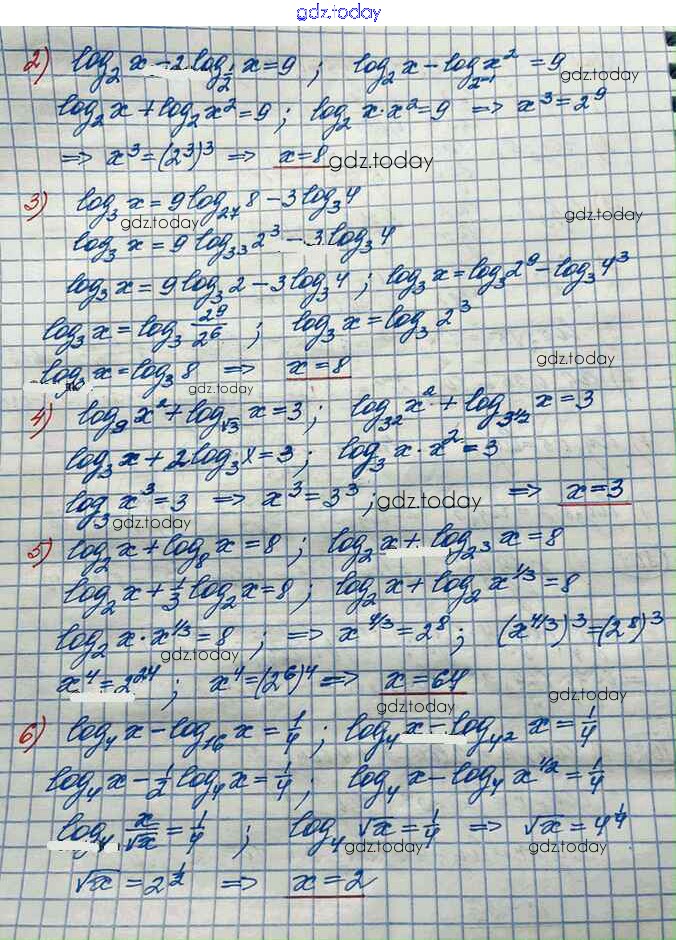 gdz.today
2) log₂ x − 2 log_{1/2} x = 9 ; log₂ x − log_{2⁻¹} x² = 9
gdz.today
log₂ x + log₂ x² = 9 ; log₂ x · x² = 9 ⇒ x³ = 2⁹
⇒ x³ = (2³)³ ⇒ x = 8 gdz.today
3) log₃ x = 9 log₂₇ 8 − 3 log₃ 4
gdz.today gdz.today
log₃ x = 9 log_{3³} 2³ − 3 log₃ 4
log₃ x = 9 log₃ 2 − 3 log₃ 4 ; log₃ x = log₃ 2⁹ − log₃ 4³
log₃ x = log₃ 2⁹/2⁶ ; log₃ x = log₃ 2³
gdz.today
log₃ x = log₃ 8 ⇒ x = 8
gdz.today
4) log₉ x² + log_{√3} x = 3 ; log_{3²} x² + log_{3^{1/2}} x = 3
log₃ x + 2 log₃ x = 3 ; log₃ x · x² = 3
log₃ x³ = 3 ⇒ x³ = 3³ ; gdz.today ⇒ x = 3
gdz.today
5) log₂ x + log₈ x = 8 ; log₂ x + log_{2³} x = 8
log₂ x + 1/3 log₂ x = 8 ; log₂ x + log₂ x^{1/3} = 8
log₂ x · x^{1/3} = 8 ; ⇒ x^{4/3} = 2⁸ ; (x^{4/3})³ = (2⁸)³
gdz.today
x⁴ = 2²⁴ ; x⁴ = (2⁶)⁴ ⇒ x = 64
gdz.today gdz.today
6) log₄ x − log₁₆ x = 1/4 ; log₄ x − log_{4²} x = 1/4
log₄ x − 1/2 log₄ x = 1/4 ; log₄ x − log₄ x^{1/2} = 1/4
log₄ x/√x = 1/4 ; log₄ √x = 1/4 ⇒ √x = 4^{1/4}
gdz.today gdz.today
√x = 2^{1/2} ⇒ x = 2